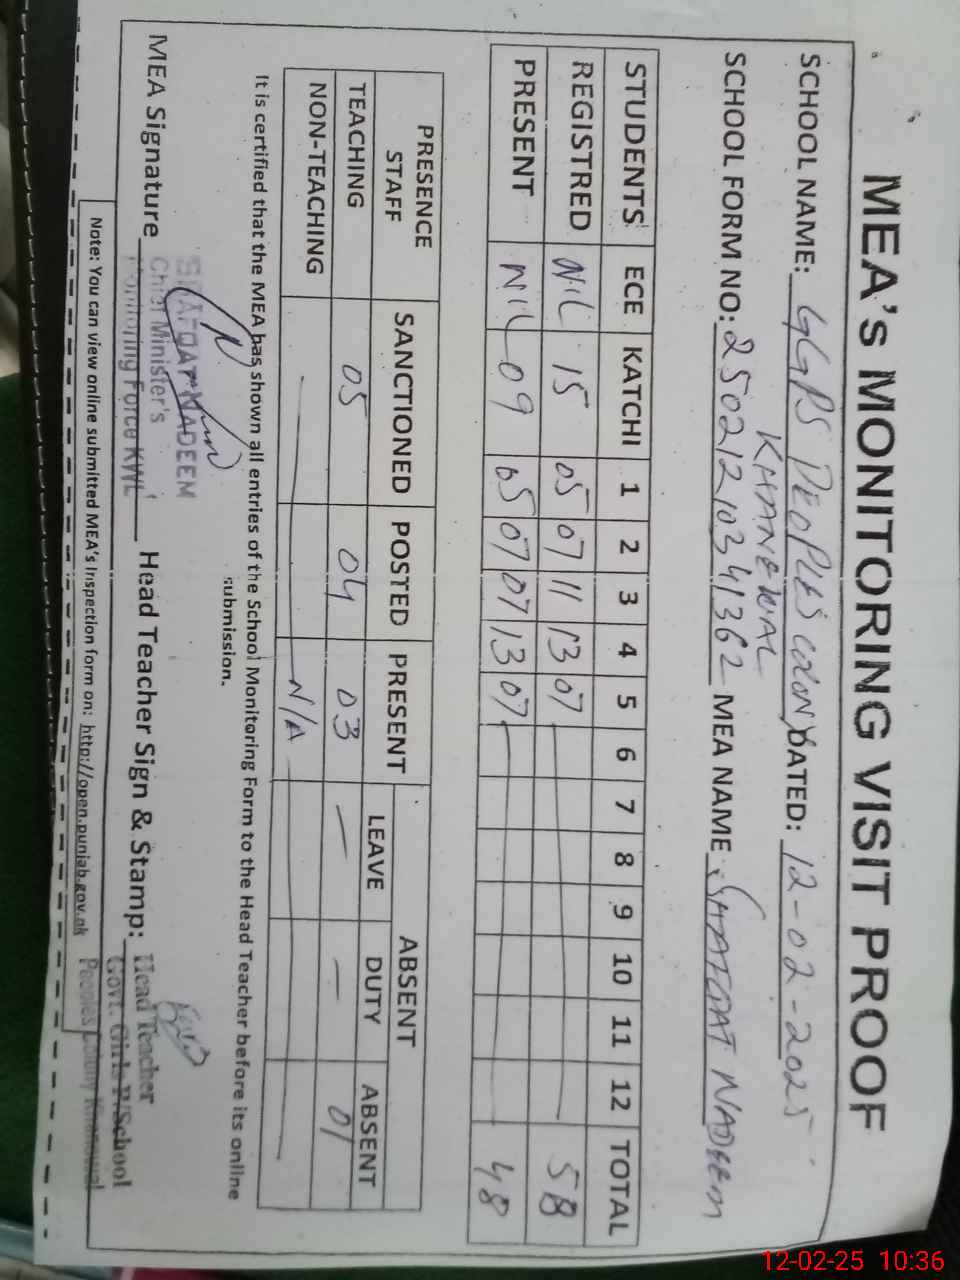 MEA'S MONITORING VISIT PROOF
SCHOOL NAME: GGPS PEOPLES COLONY DATED: 12-02-2025
KHANEWAL
SCHOOL FORM NO: 25021210341362 MEA NAME SHAFQAT NADEEM
STUDENTS ECE KATCHI 1 2 3 4 5 6 7 8 9 10 11 12 TOTAL
REGISTRED NIL 15 05 07 11 13 07 58
PRESENT NIL 09 05 07 07 13 07 48
PRESENCE STAFF SANCTIONED POSTED PRESENT ABSENT
LEAVE DUTY ABSENT
TEACHING 05 04 03 — — 01
NON-TEACHING — N/A
It is certified that the MEA has shown all entries of the School Monitoring Form to the Head Teacher before its online
submission.
SHAFQAT NADEEM
MEA Signature Chief Minister's Head Teacher Sign & Stamp: Head Teacher
Monitoring Force KWL Govt. Girls P/School
Peoples Colony Khanewal
Note: You can view online submitted MEA's Inspection form on: http://open.punjab.gov.pk
12-02-25 10:36